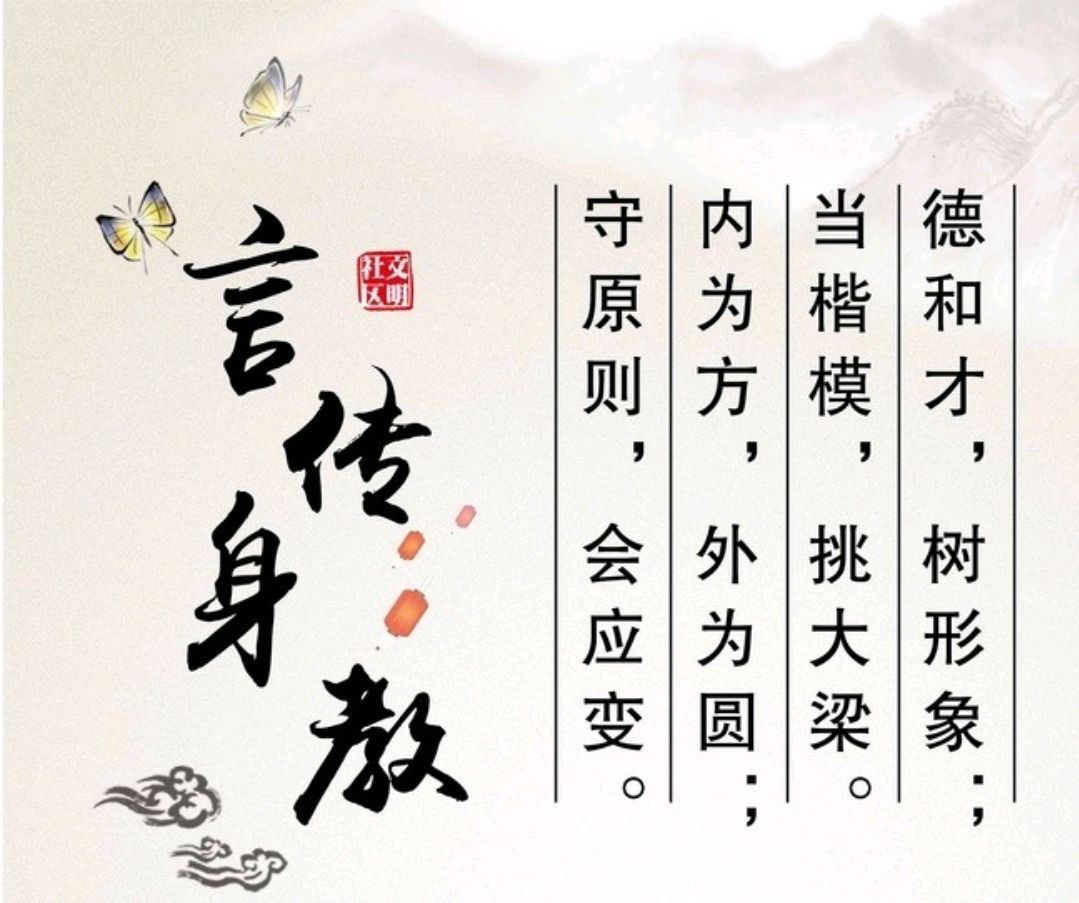 德和才，树形象；
当楷模，挑大梁。
内为方，外为圆；
守原则，会应变。
文明
社区
言传身教